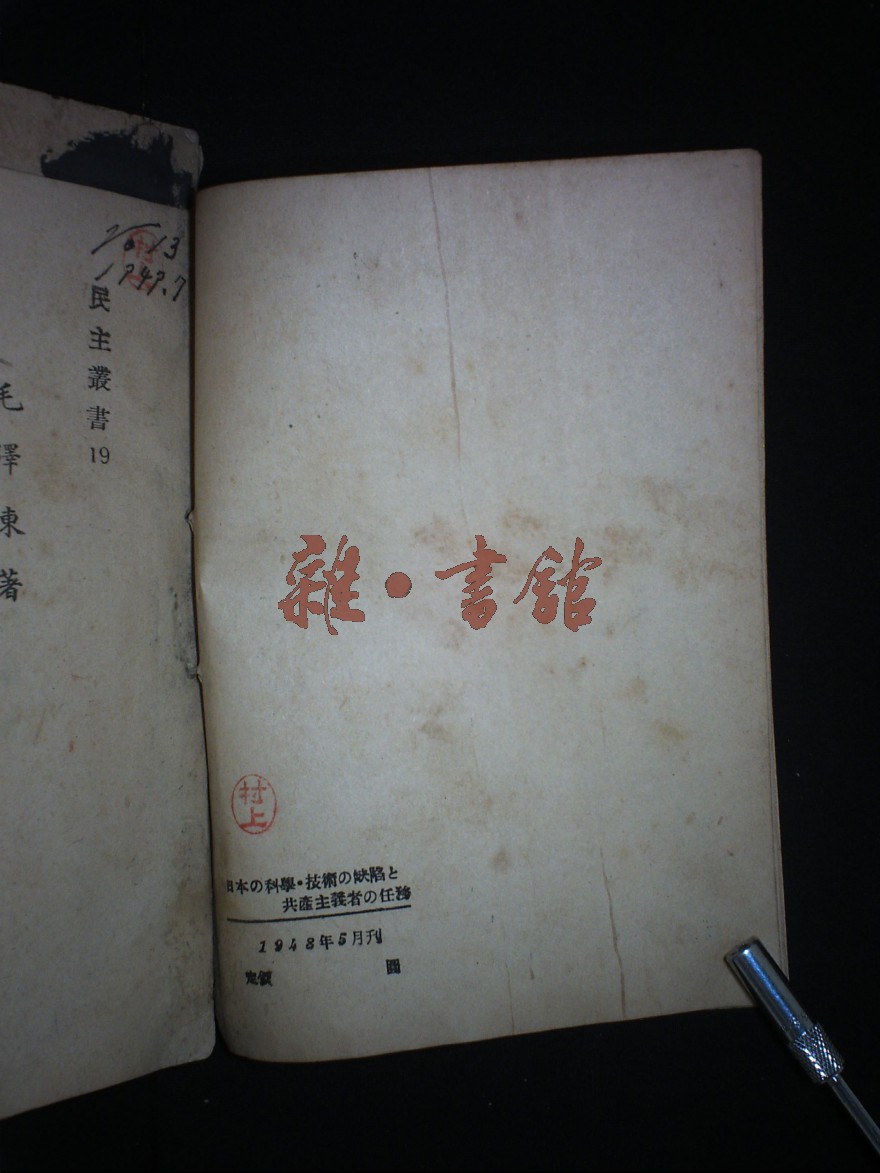 1949.7
民主叢書19
毛澤東著
雜・書館
村上
日本の科學・技術の缺陷と
共產主義者の任務
1948年5月刊
定價 圓